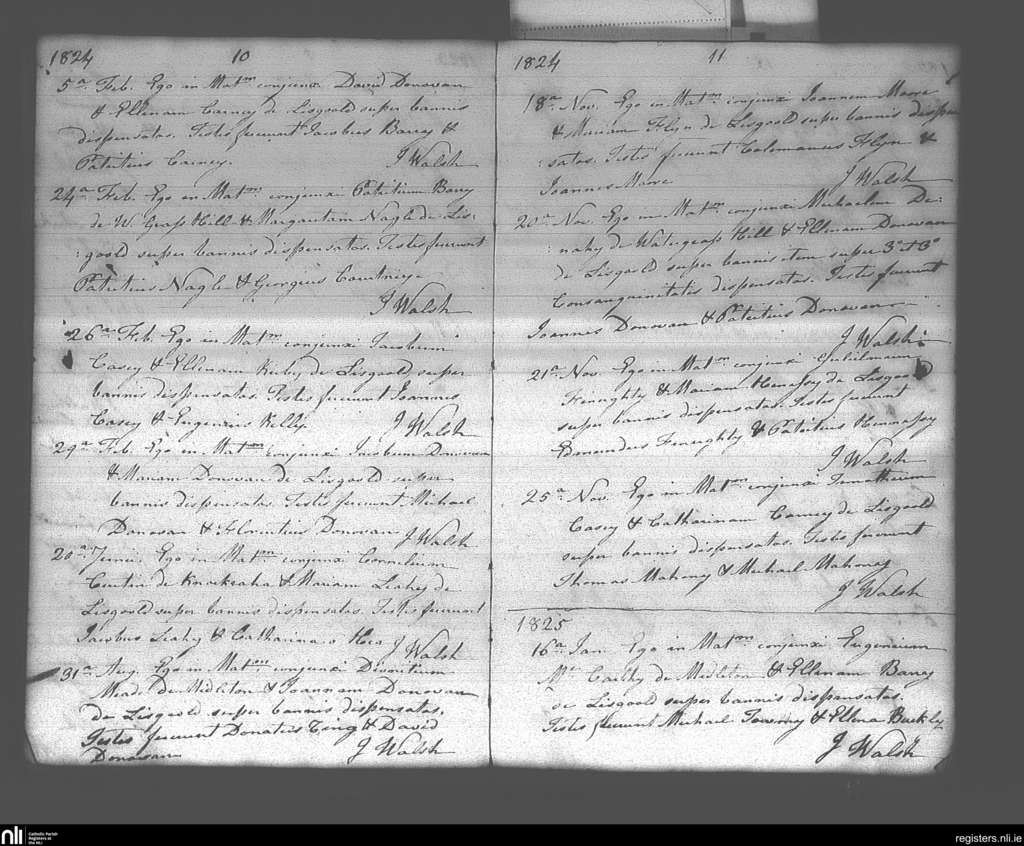 1824 10
5a. Feb. Ego in Matm. conjunxi David Donovan
& Ellenam Carney de Lisgoold super bannis
dispensatos. Testes fuerunt Jacobus Barry &
Patritius Carney. J Walsh
24a Feb. Ego in Matm. conjunxi Patritium Barry
de W. Grass Hill & Margaritam Nagle de Lis:
:goold super bannis dispensatos. Testes fuerunt
Patritius Nagle & Georgius
J Walsh
26a Feb. Ego in Matm. conjunxi Jacobum
Casey & Ellenam de Lisgoold super
bannis dispensatos. Testes fuerunt Joannes
Casey & Eugenius Kelly. J Walsh
29a Feb. Ego in Matm. conjunxi Jacobum Donovan
& Mariam Donovan de Lisgoold super
bannis dispensatos Testes fuerunt Michael
Donovan & Florentius Donovan J Walsh
20a Junii. Ego in Matm. conjunxi Cornelium
Curtin de Knockraha & Mariam Leahy de
Lisgoold super bannis dispensatos. Testes fuerunt
Jacobus Leahy & Catharina J Walsh
31a Aug. Ego in Matm. conjunxi
Meade de Midleton & Joannam Donovan
de Lisgoold super bannis dispensatos.
Testes fuerunt Donatus & David
Donovan J Walsh
1824 11
18a. Nov. Ego in Matm. conjunxi Joannem Moore
& Mariam Flyn de Lisgoold super bannis dispen
:satos. Testes fuerunt Colemanus Flyn &
Joannes Moore J Walsh
20a Nov. Ego in Matm. conjunxi Michaelem De:
:nahy de Watergrass Hill & Ellenam Donovan
de Lisgoold super bannis item super 3o & 3o
Consanguinitatis dispensatos. Testes fuerunt
Joannes Donovan & Patritius Donovan
J Walsh
21a. Nov. Ego in Matm. conjunxi Gulielmum
Henaghty & Mariam Henessy de Lisgoold
super bannis dispensatos. Testes fuerunt
& Patritius Hennessy
J Walsh
25a Nov. Ego in Matm. conjunxi Timotheum
Casey & Catharinam Carney de Lisgoold
super bannis dispensatos. Testes fuerunt
Thomas Mahony & Michael Mahony
J Walsh
1825
16a Jan Ego in Matm. conjunxi Eugenium
Mc Carthy de Midleton & Ellenam Barry
de Lisgoold super bannis dispensatos.
Testes fuerunt Michael & Ellena Buckley
J Walsh
nli Catholic Parish
Registers at
the NLI
registers.nli.ie